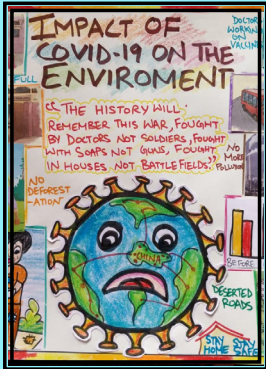 IMPACT OF
COVID-19 ON THE
ENVIROMENT
DOCTOR
WORKIN
ON
VACCIN
FULL
"THE HISTORY WILL
REMEMBER THIS WAR, FOUGHT
BY DOCTORS NOT SOLDIERS, FOUGHT
WITH SOAPS NOT GUNS, FOUGHT
IN HOUSES NOT BATTLEFIELDS."
NO
MORE
POLLUTION
NO
DEFOREST
-ATION
CHINA
BEFORE
DESERTED
ROADS
STAY STAY
HOME SAFE